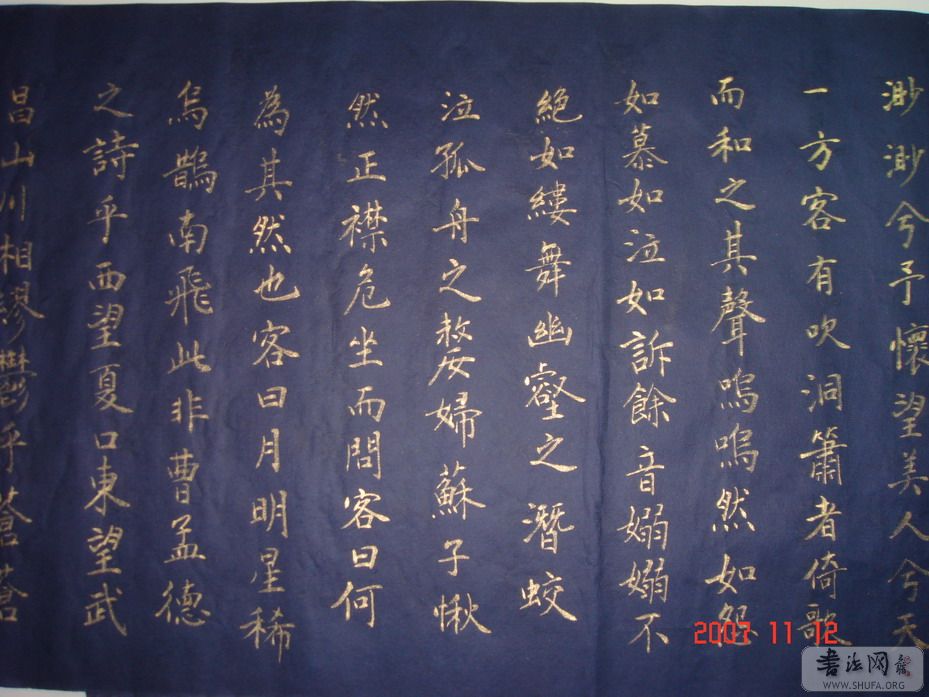 渺渺兮予懷望美人兮天
一方客有吹洞簫者倚歌
而和之其聲嗚嗚然如怨
如慕如泣如訴餘音嫋嫋不
絕如縷舞幽壑之潛蛟
泣孤舟之嫠婦蘇子愀
然正襟危坐而問客曰何
為其然也客曰月明星稀
烏鵲南飛此非曹孟德
之詩乎西望夏口東望武
昌山川相繆鬱乎蒼蒼
2007 11 12
書法网
WWW.SHUFA.ORG